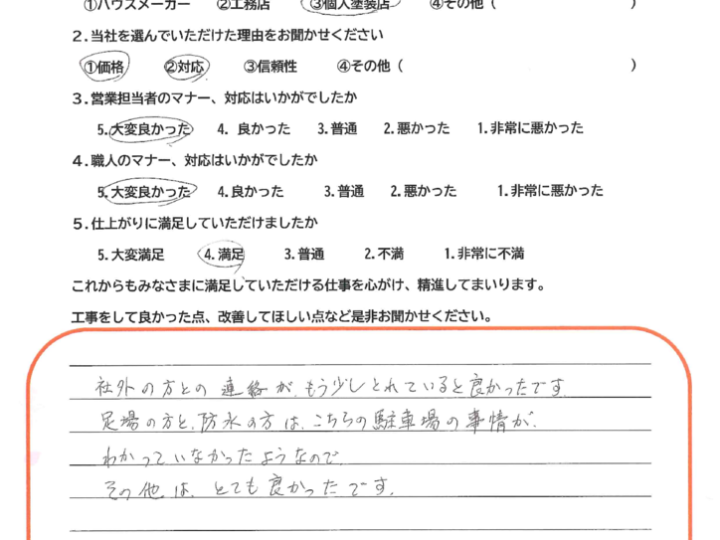 ①ハウスメーカー ②工務店 ③個人塗装店 ④その他（ ）
２.当社を選んでいただけた理由をお聞かせください
①価格 ②対応 ③信頼性 ④その他（ ）
３.営業担当者のマナー、対応はいかがでしたか
5.大変良かった 4. 良かった 3.普通 2.悪かった 1.非常に悪かった
４.職人のマナー、対応はいかがでしたか
5.大変良かった 4.良かった 3.普通 2.悪かった 1.非常に悪かった
５.仕上がりに満足していただけましたか
5.大変満足 4.満足 3.普通 2.不満 1.非常に不満
これからもみなさまに満足していただける仕事を心がけ、精進してまいります。
工事をして良かった点、改善してほしい点など是非お聞かせください。
社外の方との連絡が、もう少しとれていると良かったです。
足場の方と、防水の方は、こちらの駐車場の事情が、
わかっていなかったようなので、
その他は、とても良かったです。